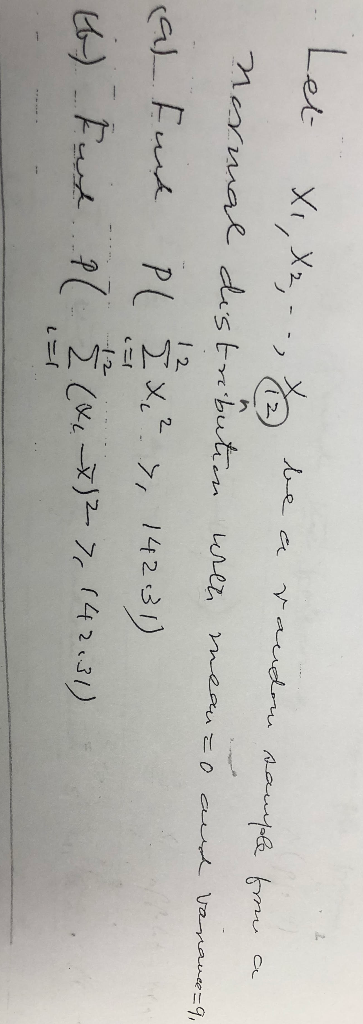 Let X₁, X₂, - -, X₁₂ be a random sample from a
normal distribution with mean = 0 and variance = 9,
(a) - Find P( 12 Σ i=1 Xᵢ² ≥, 142.31)
(b) - Find P( 12 Σ i=1 (Xᵢ - X̄)² ≥, 142.31)